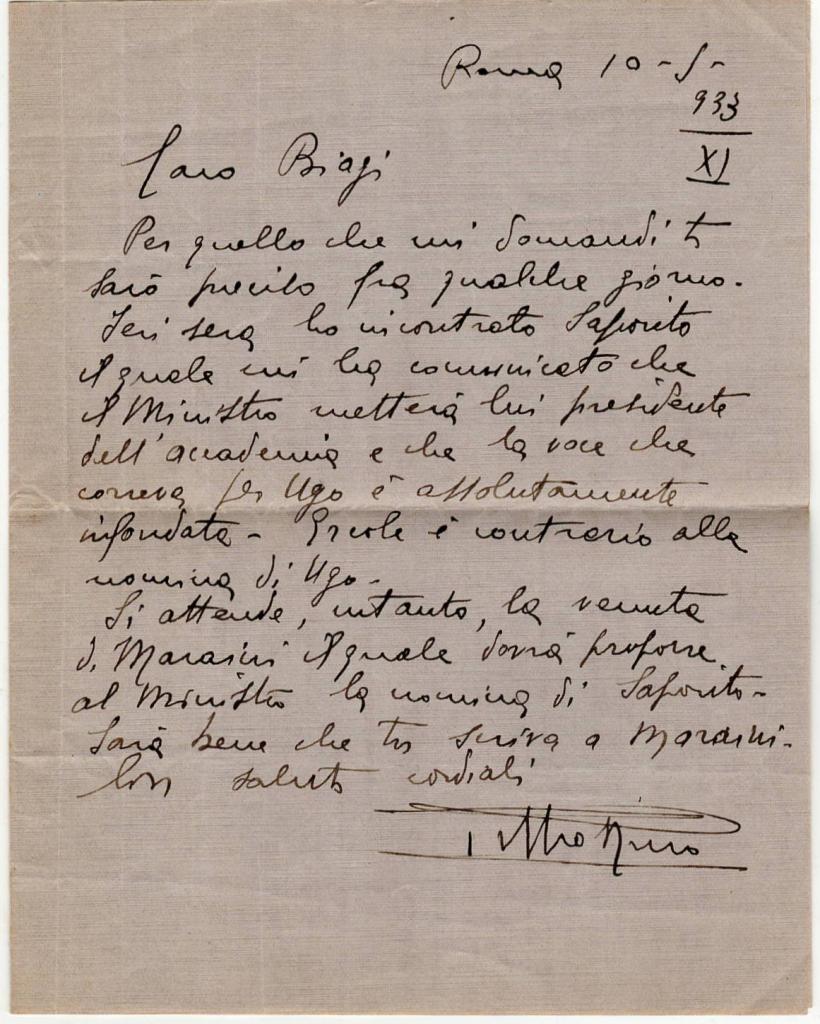 Roma 10-5-
933
XI
Caro Biagi
Per quello che mi domandi ti
sarò preciso fra qualche giorno.
Ieri sera ho incontrato Saporito
il quale mi ha comunicato che
il Ministro metterà lui presidente
dell'accademia e che la voce che
correva per Ugo è assolutamente
infondata - Ercole è contrario alla
nomina di Ugo -
Si attende, intanto, la venuta
di Maraini il quale dovrà proporre
al Ministro la nomina di Saporito -
Sarà bene che tu scriva a Maraini -
Con saluti cordiali